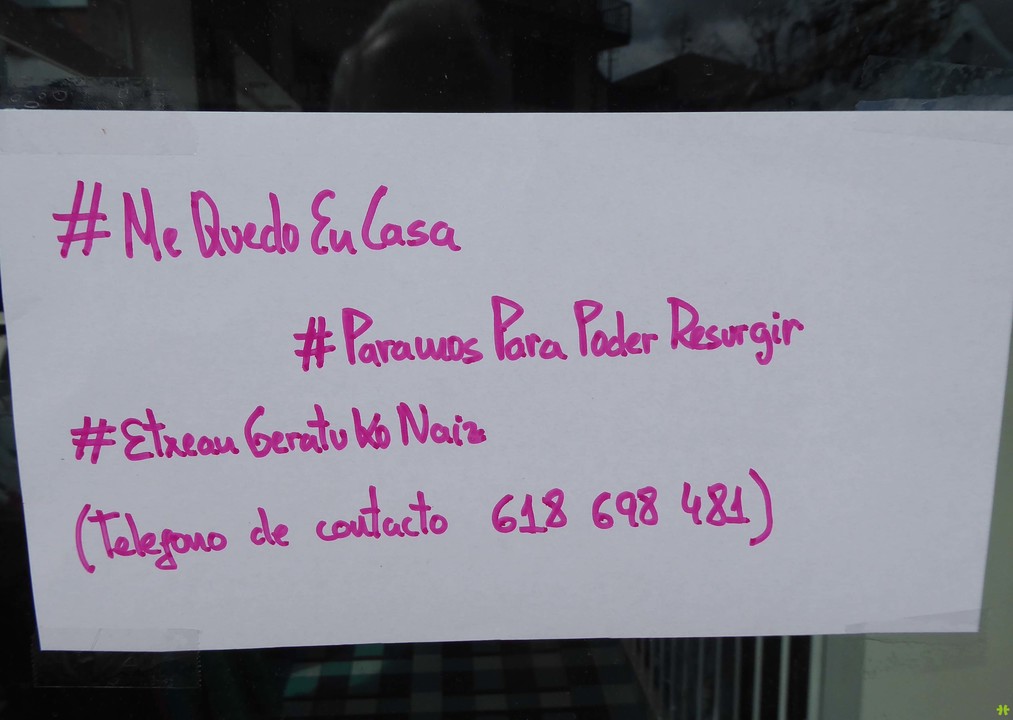 #Me Quedo En Casa
#Paramos Para Poder Resurgir
#Etxean Geratuko Naiz
(Telefono de contacto 618 698 481)